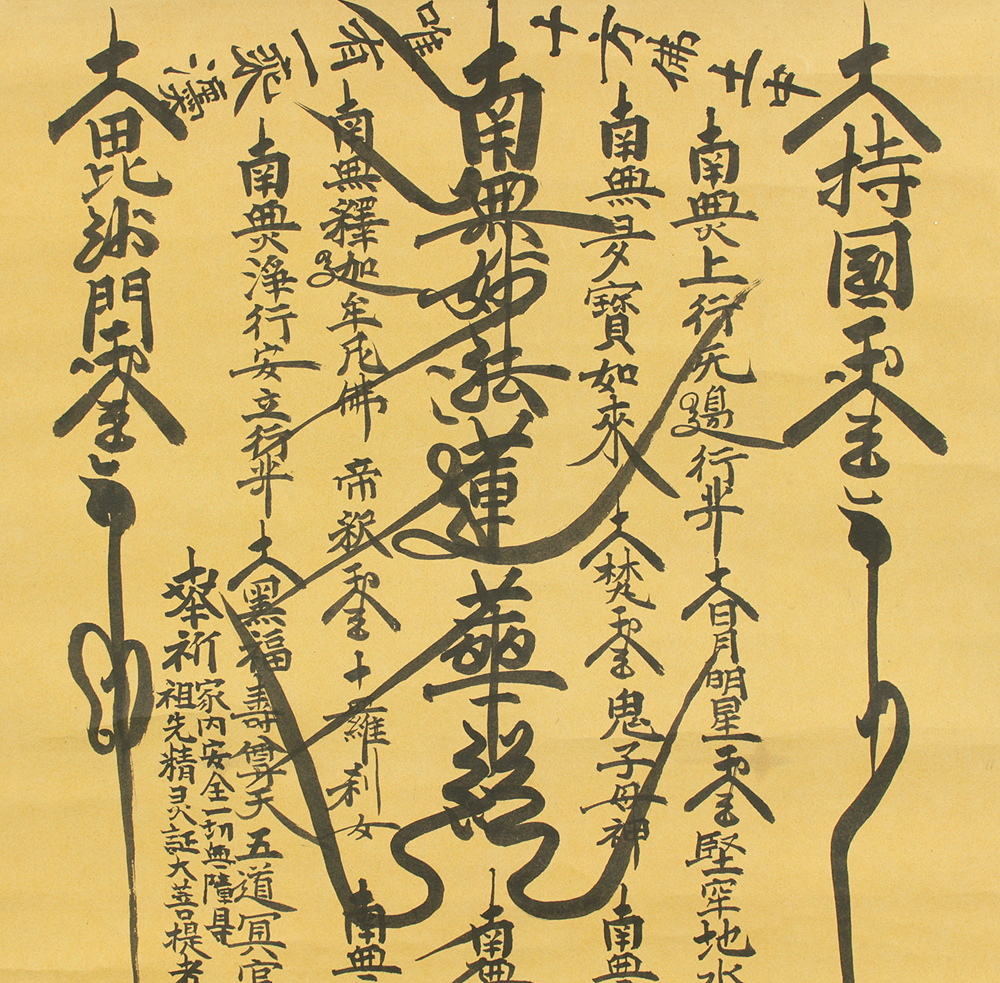 十方佛土中
唯有一乘
大持國天王
南無上行无邊行菩
大日月明星天王
堅牢地水
南無多寶如來
大梵天王
鬼子母神
南無
南無妙法蓮華經
南無
南無釋迦牟尼佛
帝釈天王
十羅刹女
南無
南無淨行安立行菩
大黑福壽尊天
五道冥官
奉祈
家内安全一切無障
祖先精灵証大菩提者
大毘沙門天王